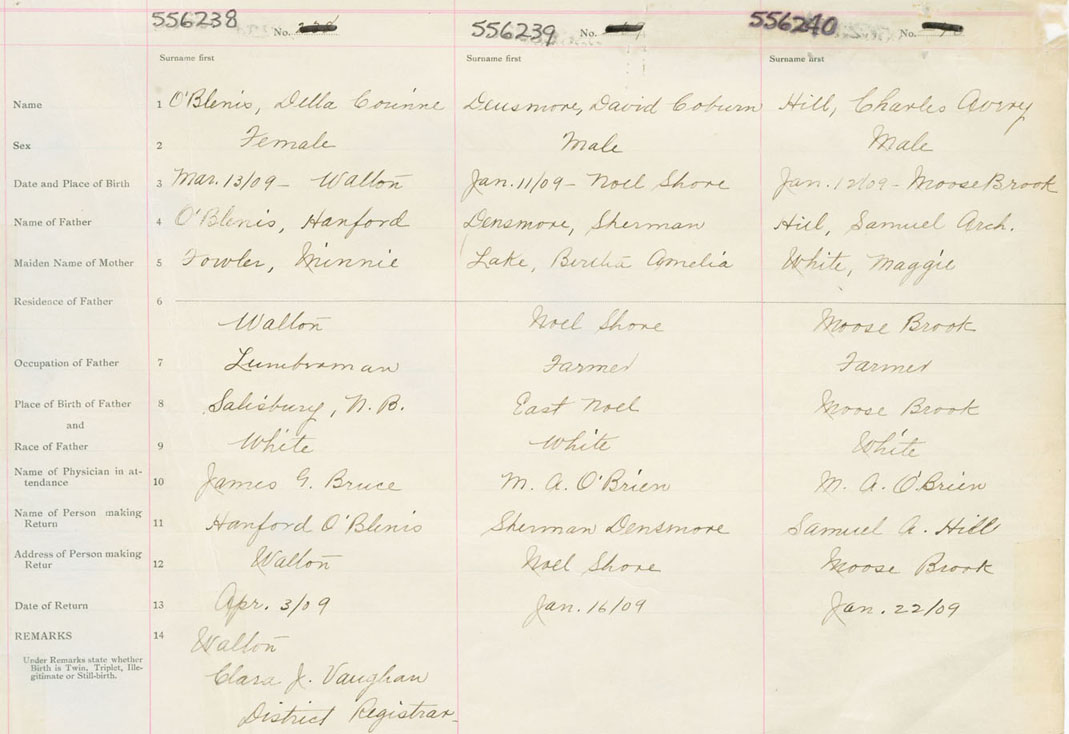 556238 No. 556239 No. 556240 No.
Surname first Surname first Surname first
Name 1 O'Blenis, Della Corinne Densmore, David Coburn Hill, Charles Avery
Sex 2 Female Male Male
Date and Place of Birth 3 Mar. 13/09 - Walton Jan. 11/09 - Noel Shore Jan. 12/09 - Moose Brook
Name of Father 4 O'Blenis, Hanford Densmore, Sherman Hill, Samuel Arch.
Maiden Name of Mother 5 Fowler, Minnie Lake, Bertha Amelia White, Maggie
Residence of Father 6
Walton Noel Shore Moose Brook
Occupation of Father 7 Lumberman Farmer Farmer
Place of Birth of Father 8 Salisbury, N.B. East Noel Moose Brook
and
Race of Father 9 White White White
Name of Physician in at-
tendance 10 James G. Bruce M. A. O'Brien M. A. O'Brien
Name of Person making
Return 11 Hanford O'Blenis Sherman Densmore Samuel A. Hill
Address of Person making
Retur 12 Walton Noel Shore Moose Brook
Date of Return 13 Apr. 3/09 Jan. 16/09 Jan. 22/09
REMARKS 14 Walton
Under Remarks state whether
Birth is Twin, Triplet, Ille-
gitimate or Still-birth.
Clara J. Vaughan
District Registrar